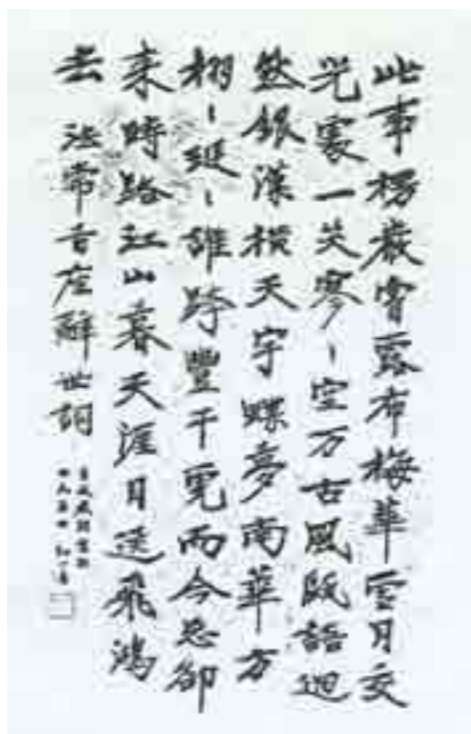 此事楞嚴嘗露布梅華雪月交
光處一笑寥〻空万古風甌語迥
然銀漢橫天宇蝶夢南華方
栩〻珽〻誰跨豐干虎而今忘卻
来時路江山暮天涯目送飛鴻
去 法常首座辭世詞